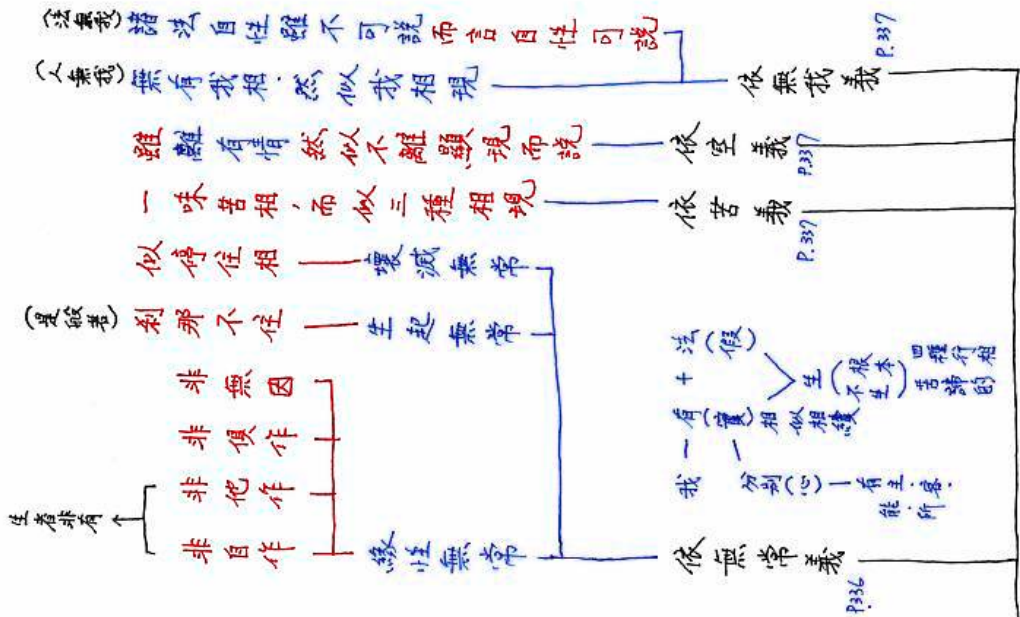 (法無我) 諸法自性雖不可說而言自性可說
(人無我) 無有我相,然似我相現
依無我義
P.337
雖離有情然似不離顯現而說
依空義
P.337
一味苦相,而似三種相現
依苦義
P.337
似停住相
壞滅無常
(是般若) 剎那不住
生起無常
非無因
非俱作
非他作
非自作
生者非有
緣性無常
依無常義
P336
我 — 有(實)相似相續
+ 法(假)
生(根本不生)
四種行相
苦諦的
分別(心) — 有主.客.
能.所